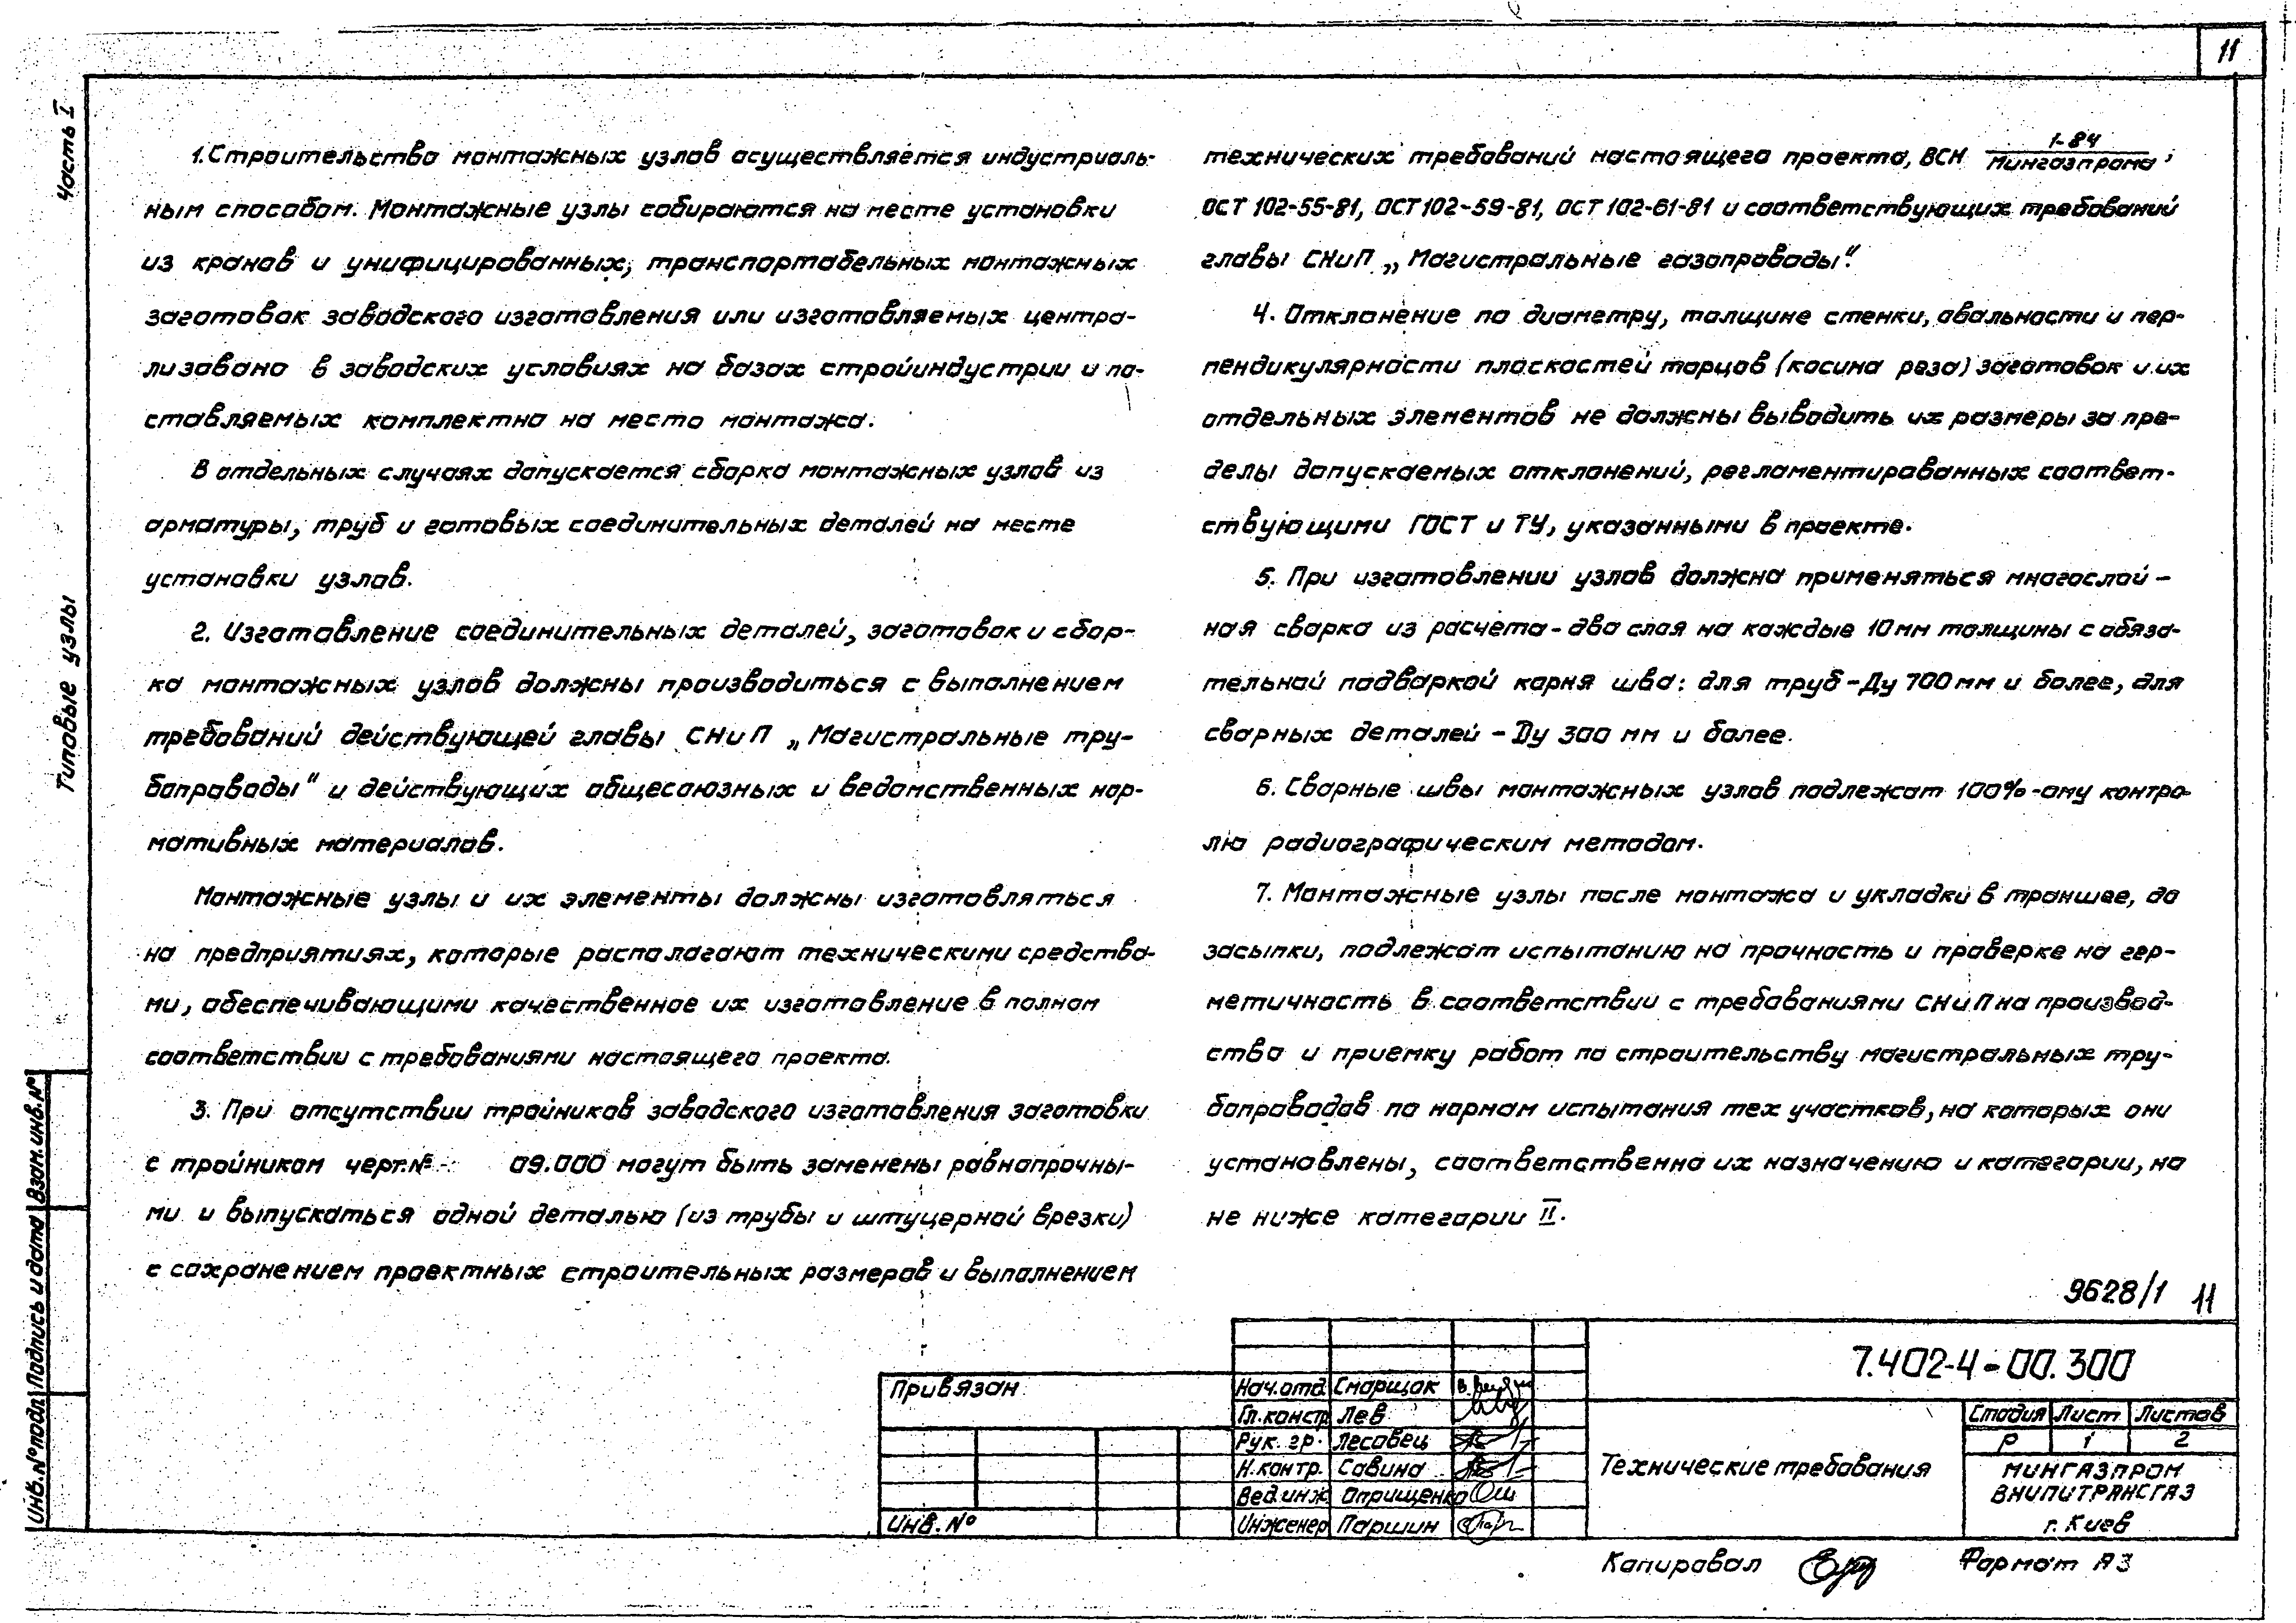 11
Часть I
Типовые узлы
1. Строительство монтажных узлов осуществляется индустриаль-
ным способом. Монтажные узлы собираются на месте установки
из кранов и унифицированных, транспортабельных монтажных
заготовок заводского изготовления или изготовляемых центра-
лизовано в заводских условиях на базах стройиндустрии и по-
ставляемых комплектно на место монтажа.
В отдельных случаях допускается сборка монтажных узлов из
арматуры, труб и готовых соединительных деталей на месте
установки узлов.
2. Изготовление соединительных деталей, заготовок и сбор-
ка монтажных узлов должны производиться с выполнением
требований действующей главы СНиП „Магистральные тру-
бопроводы" и действующих общесоюзных и ведомственных нор-
мативных материалов.
Монтажные узлы и их элементы должны изготовляться
на предприятиях, которые располагают техническими средства-
ми, обеспечивающими качественное их изготовление в полном
соответствии с требованиями настоящего проекта.
3. При отсутствии тройников заводского изготовления заготовки
с тройником черт.№- 09.000 могут быть заменены равнопрочны-
ми и выпускаться одной деталью (из трубы и штуцерной врезки)
с сохранением проектных строительных размеров и выполнением
технических требований настоящего проекта, ВСН 1-84/Мингазпрома,
ОСТ 102-55-81, ОСТ 102-59-81, ОСТ 102-61-81 и соответствующих требований
главы СНиП „Магистральные газопроводы".
4. Отклонение по диаметру, толщине стенки, овальности и пер-
пендикулярности плоскостей торцов (косина реза) заготовок и их
отдельных элементов не должны выводить их размеры за пре-
делы допускаемых отклонений, регламентированных соответ-
ствующими ГОСТ и ТУ, указанными в проекте.
5. При изготовлении узлов должна применяться многослой-
ная сварка из расчета - два слоя на каждые 10 мм толщины с обяза-
тельной подваркой корня шва: для труб - Ду 700 мм и более, для
сварных деталей - Ду 300 мм и более.
6. Сварные швы монтажных узлов подлежат 100%-ому контро-
лю радиографическим методом.
7. Монтажные узлы после монтажа и укладки в траншее, до
засыпки, подлежат испытанию на прочность и проверке на гер-
метичность в соответствии с требованиями СНиП на производ-
ство и приемку работ по строительству магистральных тру-
бопроводов по нормам испытания тех участков, на которых они
установлены, соответственно их назначению и категории, но
не ниже категории II.
9628/1 11
Инв.№подл. Подпись и дата Взам.инв.№
Привязан
Инв. №
Нач.отд. Смарщок
Гл.констр. Лев
Рук. гр. Лесовец
Н.контр. Савина
Вед.инж. Оприщенко
Инженер Паршин
7.402-4-00.300
Технические требования
Стадия Лист Листов
Р 1 2
МИНГАЗПРОМ
ВНИПИТРАНСГАЗ
г. Киев
Копировал
Формат А3